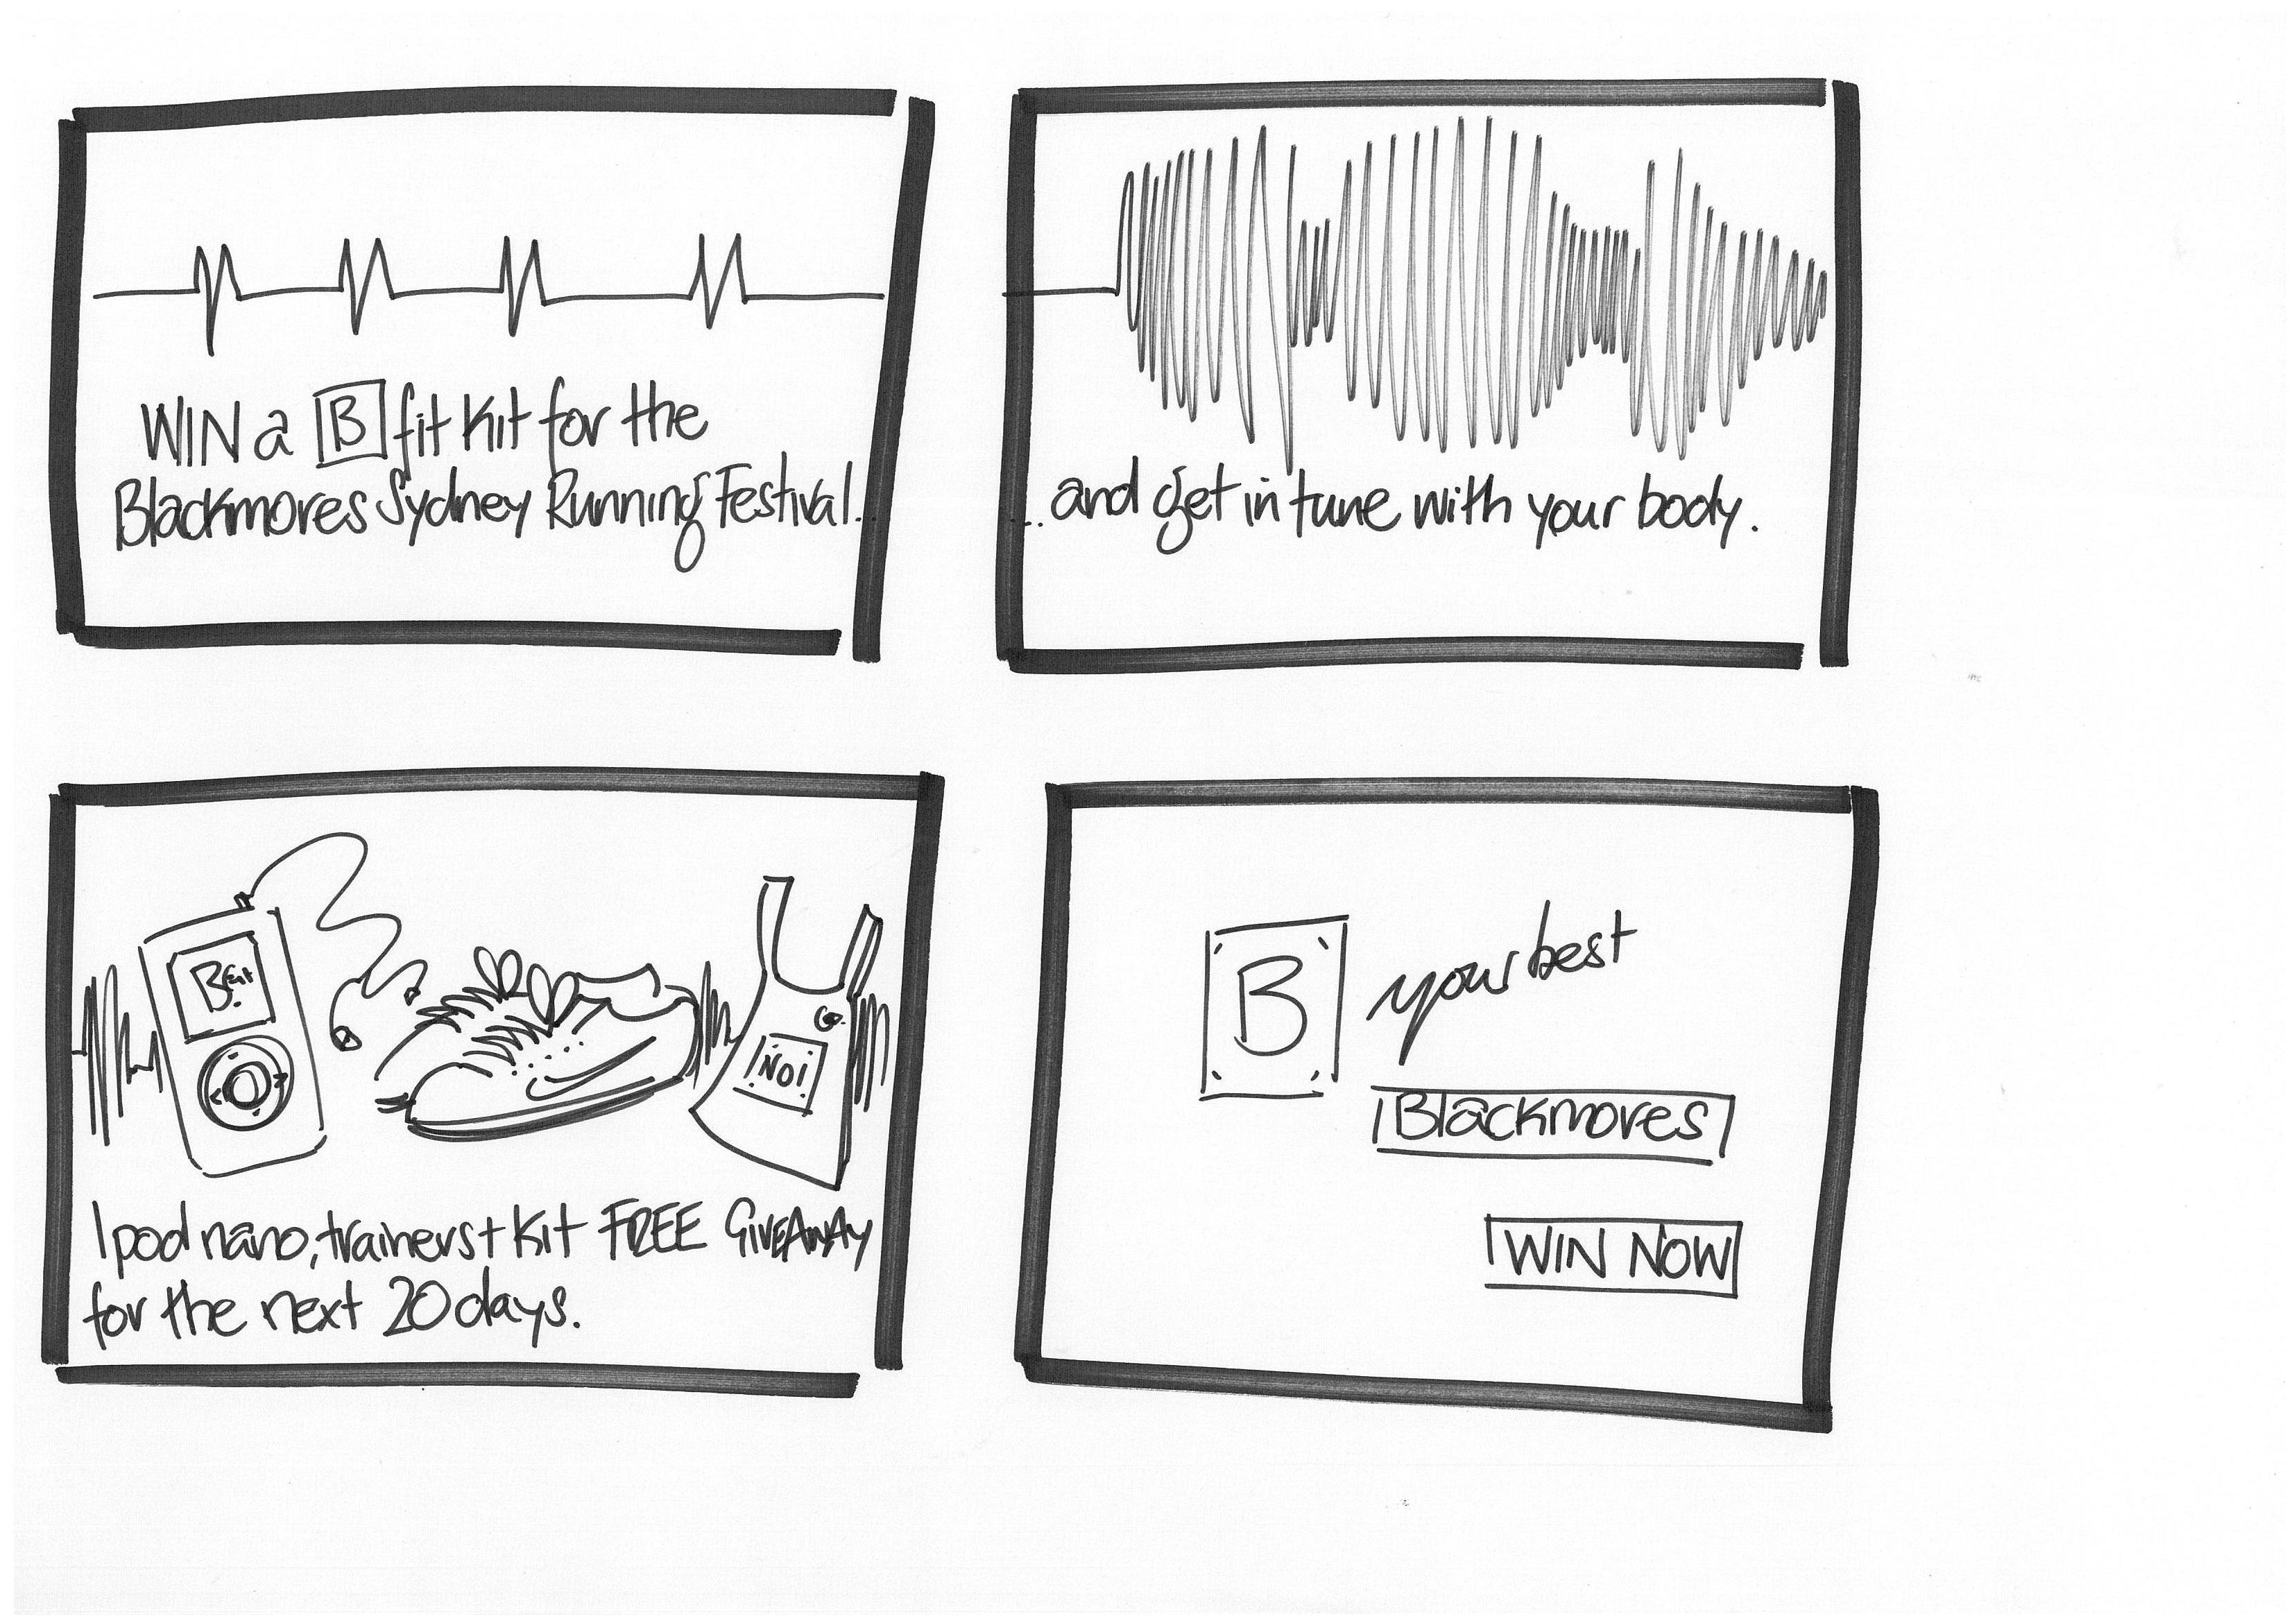 WIN a B fit Kit for the
Blackmores Sydney Running Festival...
...and get in tune with your body.
B Fit
NO1
Ipod nano, trainers + Kit FREE GIVEAWAY
for the next 20 days.
B your best
Blackmores
WIN NOW